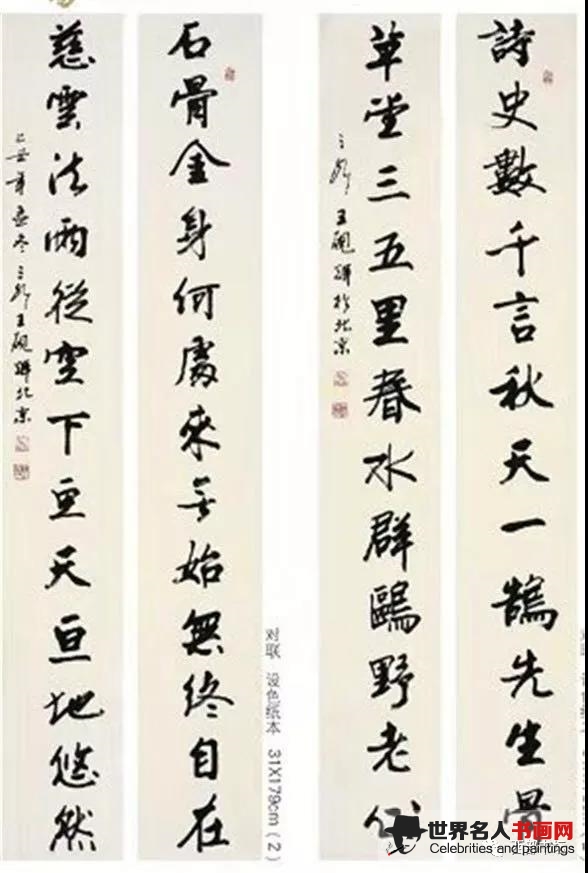 詩史數千言秋天一鵠先生骨
草堂三五里春水群鷗野老心
王 北京
对联 设色纸本 31X179cm（2）
石骨金身何處來無始無終自在
慈雲法雨從空下亘天亘地悠然
己丑年孟冬 王 北京
世界名人书画网
Celebrities and paintings